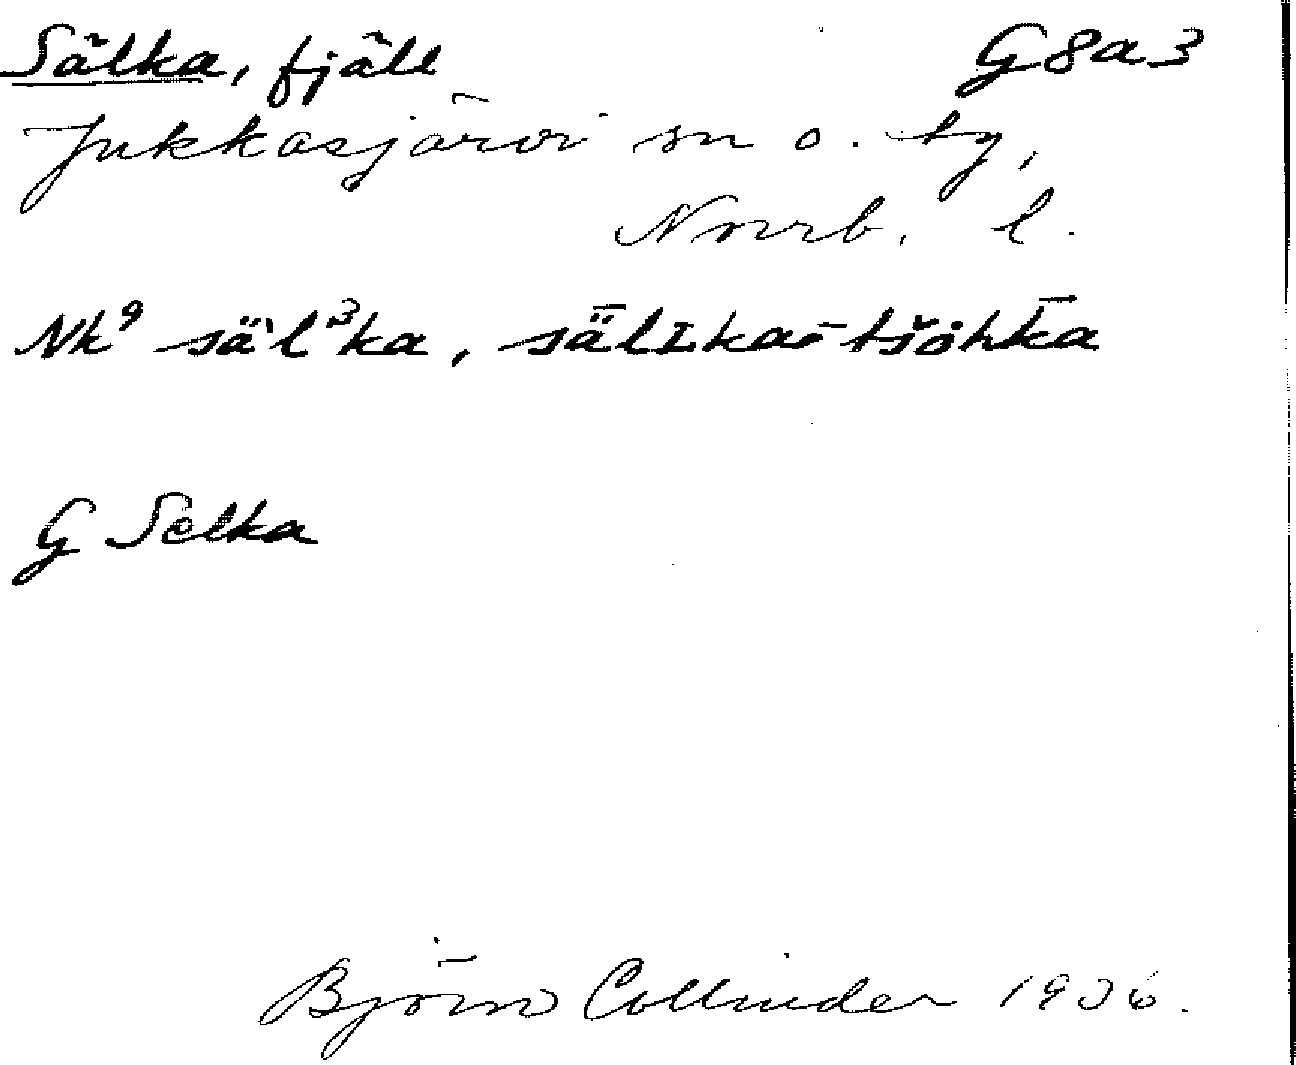 Sälka, fjäll G8a3
Jukkasjärvi sn o. tg,
Norrb. l.
Nk⁹ sä`l³ka, sälɪka-tšåhka
G Selka
Björn Collinder 1936.